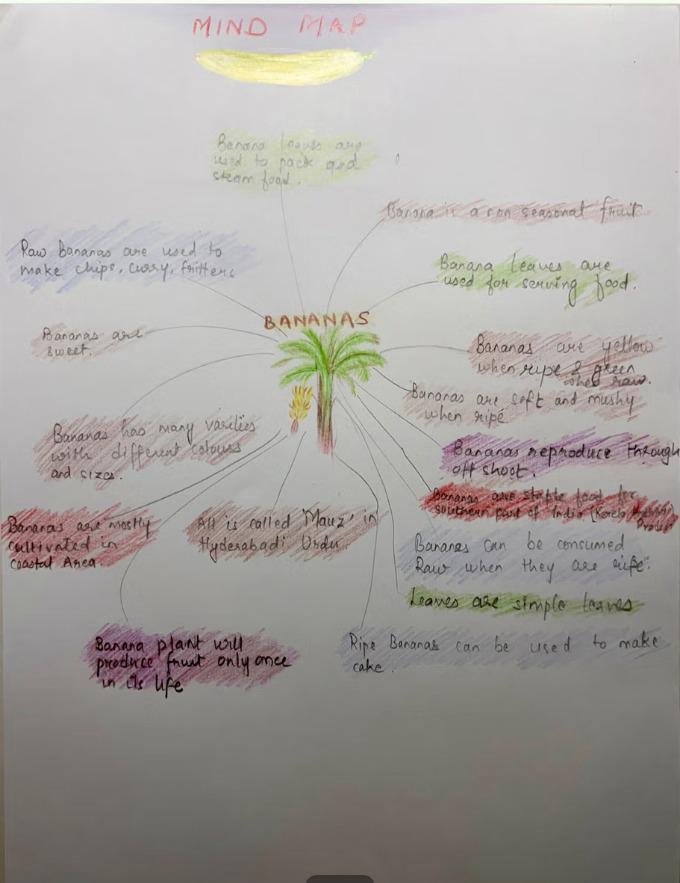 MIND MAP
Banana leaves are
used to pack and
steam food.
Banana is a non seasonal fruit
Raw Bananas are used to
make chips, curry, fritters
Banana leaves are
used for serving food.
BANANAS
Bananas are
sweet.
Bananas are yellow
when ripe & green
when raw.
Bananas are soft and mushy
when ripe
Bananas has many varities
with different colours
and sizes.
Bananas reproduce through
off shoot.
Bananas are staple food for
southern part of India (Kerela
Bananas are mostly
cultivated in
coastal Area
All is called 'Mauz' in
Hyderabadi Urdu
Bananas can be consumed
Raw when they are ripe.
Leaves are simple leaves
Banana plant will
produce fruit only once
in its life
Ripe Bananas can be used to make
cake.